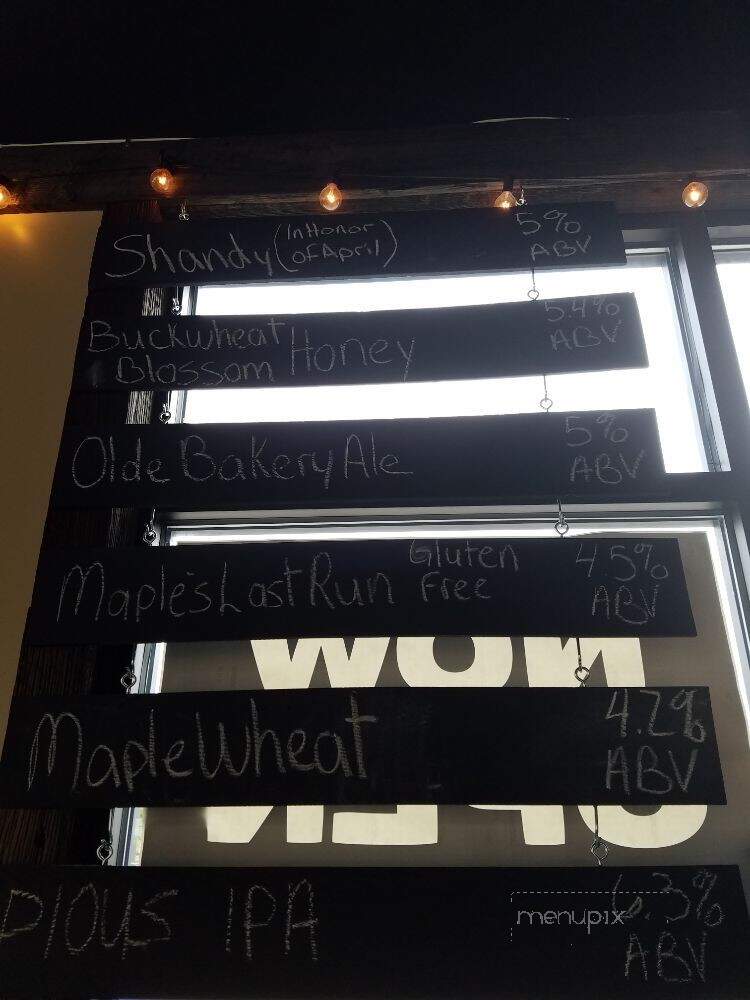 Shandy (In Honor of April) 5% ABV
Buckwheat Blossom Honey 5.4% ABV
Olde Bakery Ale 5% ABV
Maple's Last Run Gluten Free 4.5% ABV
NOW
Maple Wheat 4.2% ABV
OPEN
PIOUS IPA 6.3% ABV
menupix